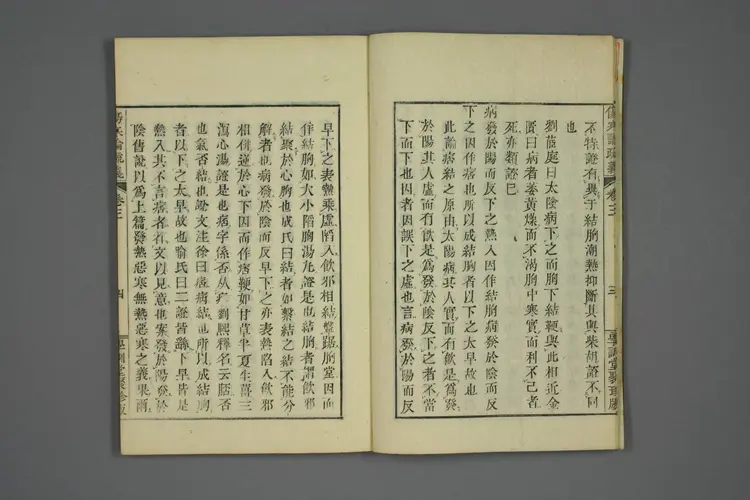 不特證有異于結胸潮熱抑斷其與柴胡證不同
也
劉茝庭曰太陰病下之而胸下結鞕與此相近金
匱曰病者萎黃燥而不渴胸中寒實而利不已者
死亦類證已
病發於陽而反下之熱入因作結胸病發於陰而反
下之因作痞也所以成結胸者以下之太早故也
此論痞結之原由太陽病其人實而有飲是爲發
於陽其人虛而有飲是爲發於陰反下之者不當
下而下也因者因誤下之虛也言病發於陽而反
傷寒論疏義 卷三 三
早下之表熱乘虛陷入飲邪相結盤踞胸堂因而
作結胸如大小陷胸湯丸證是也結胸者謂飲邪
結聚於心胸也成氏曰結者如繫結之結不能分
解者也病發於陰而反早下之亦表熱陷入飲邪
相併逆於心下因而作痞鞕如甘草半夏生薑三
瀉心湯證是也痞字係否从疒劉熙釋名云痞否
也氣否結也證文注徐曰痞病結也所以成結胸
者以下之太早故也喻氏曰二證皆緣下早皆是
熱入其不言痞者省文以見意也案發於陽發於
陰舊說以爲上篇發熱惡寒無熱惡寒之義果爾
傷寒論疏義 卷三 四